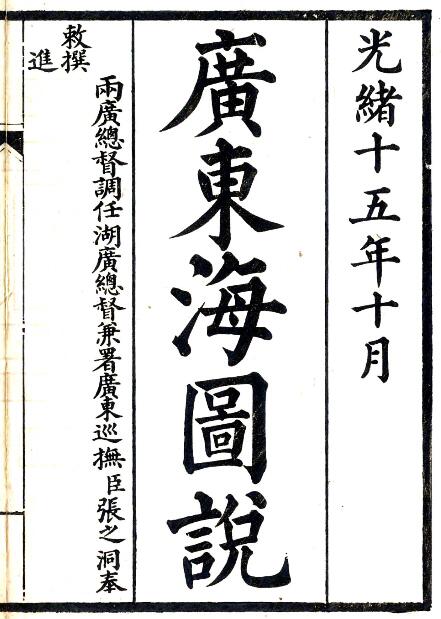 光緒十五年十月
廣東海圖說
兩廣總督調任湖廣總督兼署廣東巡撫臣張之洞奉
敕撰
進